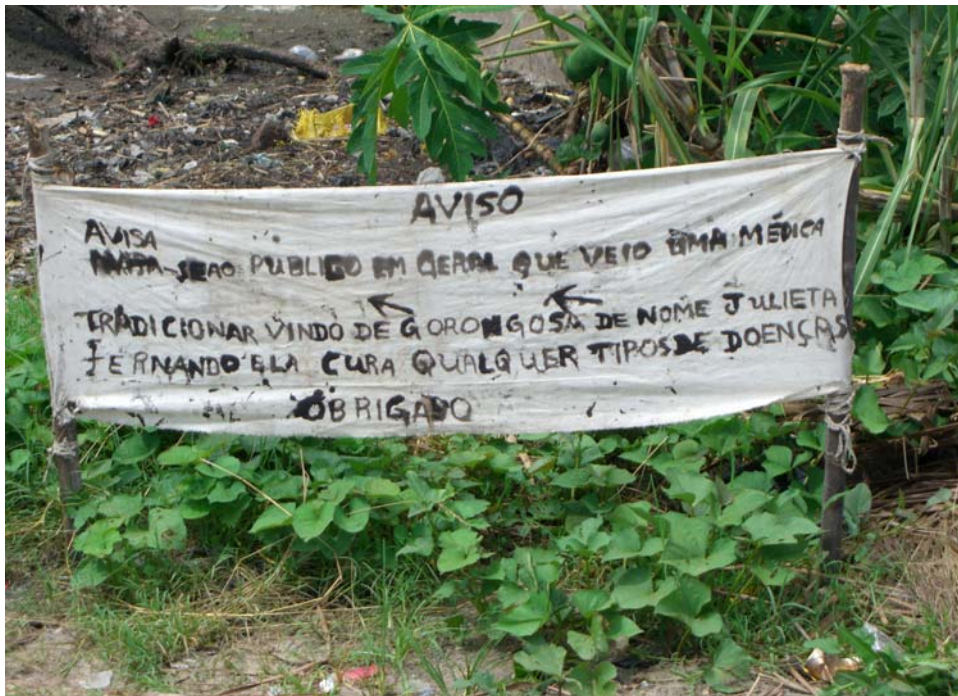 AVISO
AVISA
-SE AO PUBLICO EM GERAL QUE VEIO UMA MÉDICA
TRADICIONAR VINDO DE GORONGOSA DE NOME JULIETA
FERNANDO ELA CURA QUALQUER TIPOS DE DOENÇAS
OBRIGADO